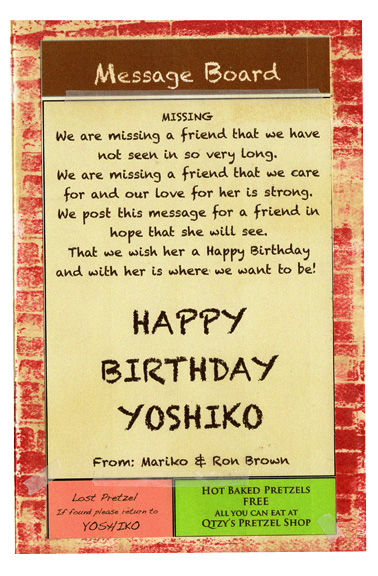 Message Board
MISSING
We are missing a friend that we have
not seen in so very long.
We are missing a friend that we care
for and our love for her is strong.
We post this message for a friend in
hope that she will see.
That we wish her a Happy Birthday
and with her is where we want to be!
HAPPY
BIRTHDAY
YOSHIKO
From: Mariko & Ron Brown
Lost Pretzel
If found please return to
YOSHIKO
HOT BAKED PRETZELS
FREE
ALL YOU CAN EAT AT
QTZY'S PRETZEL SHOP